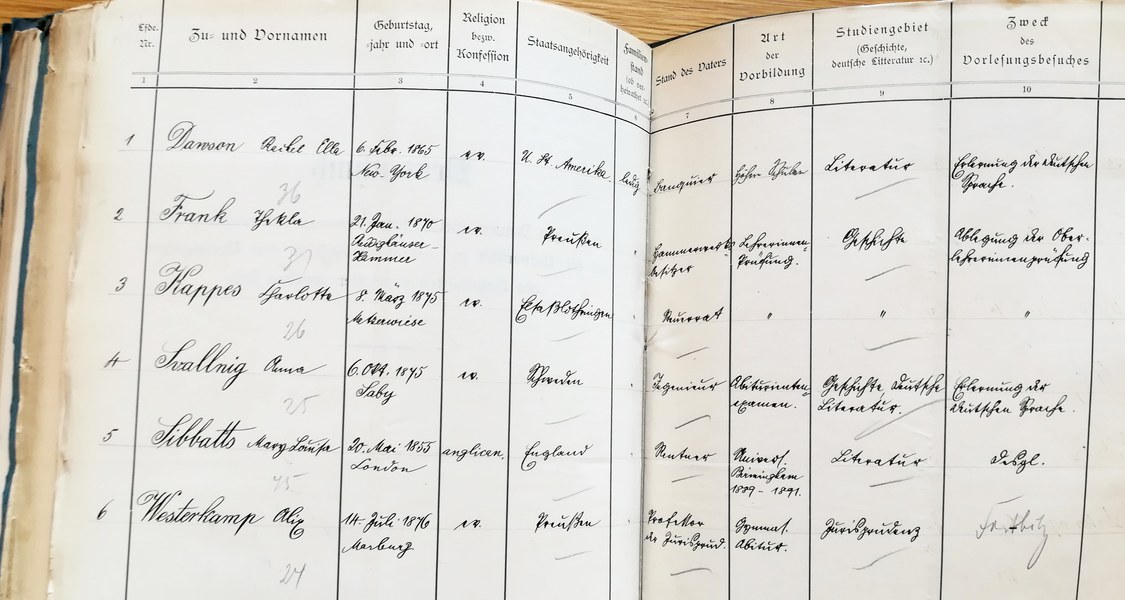 Lfde. Nr.
Zu- und Vornamen
Geburtstag, -jahr und -ort
Religion bezw. Konfession
Staatsangehörigkeit
Familienstand
Stand des Vaters
Art der Vorbildung
Studiengebiet (Geschichte, deutsche Litteratur ec.)
Zweck des Vorlesungsbesuches
1 2 3 4 5 6 7 8 9 10
1 Dawson Ella 6. Febr. 1865 ev. U. St. Amerika. ledig Banquier Höhere Schule Literatur Erlernung der deutschen
New-York Sprache.
36
2 Frank Thekla 21. Jan. 1870 ev. Preußen Hammerwerks Lehrerinnen Geschichte Ablegung der Ober-
Hammer besitzer Prüfung. lehrerinnenprüfung
31
3 Kappes Charlotte 8. März 1875 ev. Elsaßlothringen " " "
26
4 Anna 6. Okt. 1875 ev. Schweden Ingenieur Abiturienten Geschichte deutsche Erlernung der
Saby examen. Literatur. deutschen Sprache.
25
5 Sibbatts Mary Louisa 20. Mai 1855 anglican. England Rentner Univers. Literatur Desgl.
London Birmingham
1889-1891.
45
6 Westerkamp Alix 14. Juli 1876 ev. Preußen Professor Gymnas. Jurisprudenz
Marburg der Jurisprud. Abitur.
24